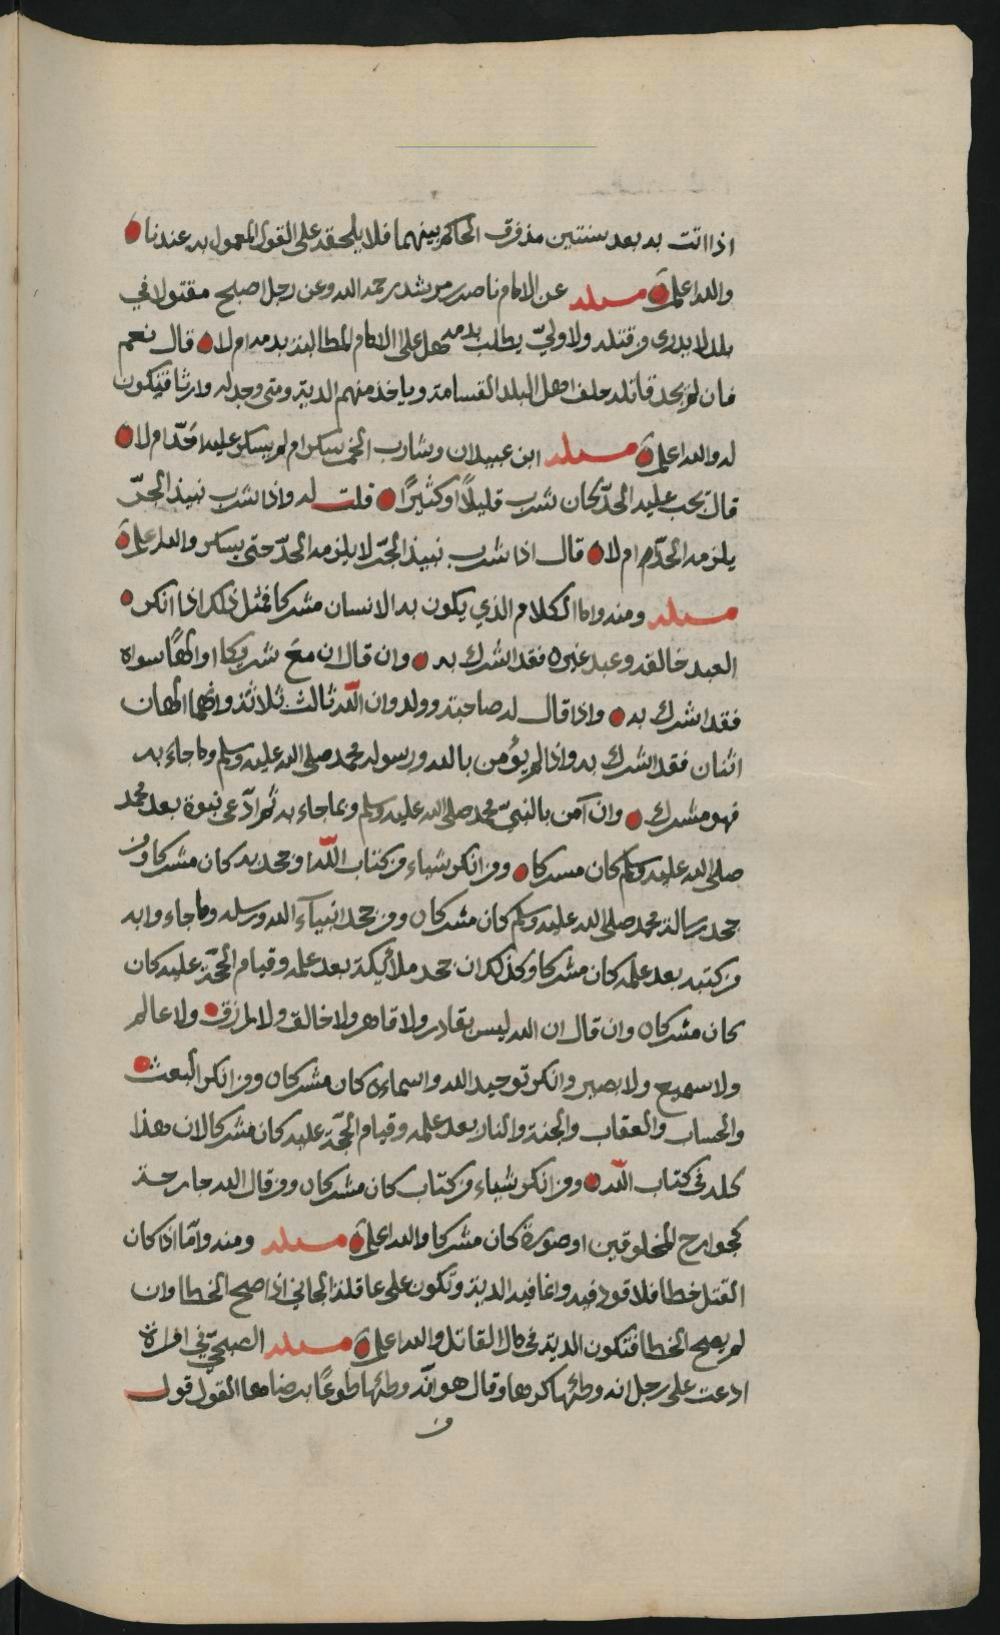 اذا اتت به بعد سنتين مذ فرق الحاكم بينهما فلا يلحقه على القول المعمول به عندنا
والله اعلم مسئلة عن الامام ناصر بن مرشد رحمه الله وعن رجل اصبح مقتولا في
بلد لا يدرى من قتله ولا وليّ يطلب بدمه هل على الامام المطالبة بدمه ام لا قال نعم
فان لم يجد قاتله حلف اهل البلد القسامة وياخذ منهم الدية ومتى وجد له وارثا فتكون
له والله اعلم مسئلة ابن عبيدان وشارب الخمر سكر ام لم يسكر عليه احَدّ ام لا
قال يجب عليه الحدّ كان شرب قليلًا او كثيرًا قلت له واذا شرب نبيذ الجرّ
يلزمه الحدّ ام لا قال اذا شرب نبيذ الجرّ لا يلزمه الحدّ حتى يسكر والله اعلم
مسئلة ومنه واما الكلام الذي يكون به الانسان مشركا فمثل ذلك اذا انكر
العبد خالقه وعبد غيره فقد اشرك به وان قال ان معَ شريكا او الهًا سواه
فقد اشرك به واذا قال له صاحبة وولد وان اللّه ثالث ثلاثة وانهما الهان
اثنان فقد اشرك به واذا لم يؤمن بالله ورسوله محمد صلى الله عليه وسلم وما جاء به
فهو مشرك وان آمن بالنبيّ محمد صلى الله عليه وسلم وبما جاء به ثم ادّعى نبوة بعد محمد
صلى الله عليه وسلم كان مشركا ومن انكر شياء من كتاب اللّه او جحد به كان مشركا ومن
جحد رسالة محمد صلى الله عليه وسلم كان مشركا ومن جحد انبياء الله ورسله وما جاءوا به
من كتبه بعد علمه كان مشركا وكذلك ان جحد ملائيكة بعد علمه وقيام الحجّة عليه كان
كان مشركا وان قال ان الله ليس بقادر ولا قاهر ولا خالق ولا رازق ولا عالم
ولا سميع ولا بصير وانكر توحيد الله واسماءه كان مشركا ومن انكر البعث
والحساب والعقاب والجنة والنار بعد علمه وقيام الحجّة عليه كان مشركا لان هذا
كله في كتاب اللّه ومن انكر شياء من كتاب كان مشركا ومن قال لله جارحة
كجوارح المخلوقين او صورة كان مشركا والله اعلم مسئلة ومنه وامّا اذا كان
القتل خطا فلا قود فيه وانما فيه الدية وتكون على عاقلة الجاني اذا صح الخطا وان
لم يصح الخطا فتكون الدية في مال القاتل والله اعلم مسئلة الصبحيّ في امراة
ادعت على رجل انه وطئها كرها وقال هو انّه وطئها طوعًا برضاها القول قول